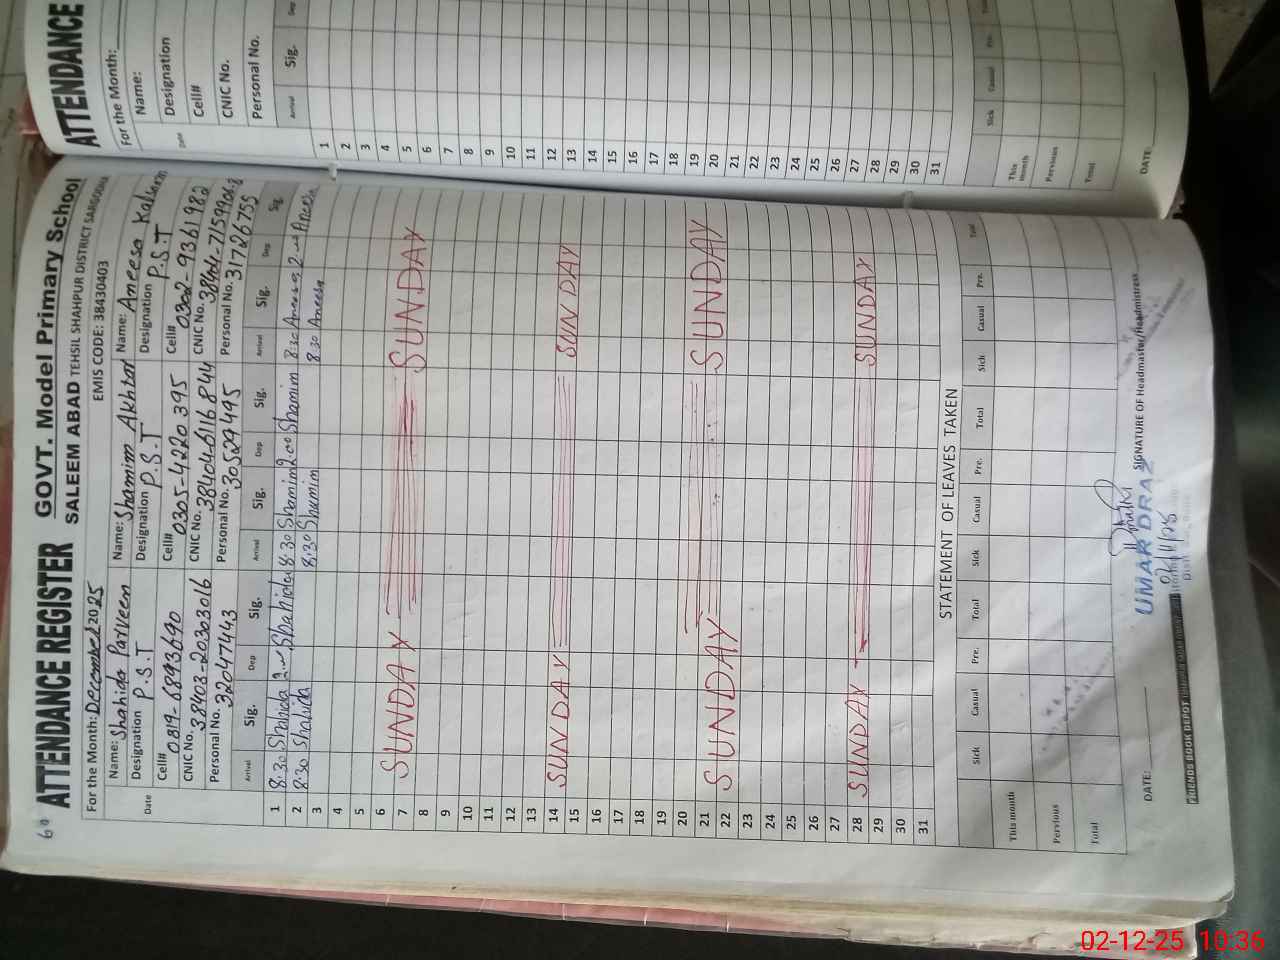 60
ATTENDANCE REGISTER GOVT. Model Primary School
SALEEM ABAD TEHSIL SHAHPUR DISTRICT SARGODHA
For the Month: December 2025 EMIS CODE: 38430403
Name: Shahida Parveen Name: Shamim Akhtar Name: Aneesa Kaleem
Designation P.S.T Designation P.S.T Designation P.S.T
Cell# 0819-6893690 Cell# 0305-4220395 Cell# 0302-9361982
CNIC No. 38403-20303016 CNIC No. 38404-6116844 CNIC No. 38404-7159906-8
Personal No. 32047443 Personal No. 30529495 Personal No. 31726755
Date Arrival Sig. Dep Sig. Arrival Sig. Dep Sig. Arrival Sig. Dep Sig.
1 8:30 Shahida 2:00 Shahida 8:30 Shamim 2:00 Shamim 8:30 Aneesa 2:00 Aneesa
2 8:30 Shahida 8:30 Shamim 8:30 Aneesa
3
4
5
6
7 SUNDAY SUNDAY
8
9
10
11
12
13
14 SUNDAY SUNDAY
15
16
17
18
19
20
21 SUNDAY SUNDAY
22
23
24
25
26
27
28 SUNDAY SUNDAY
29
30
31
STATEMENT OF LEAVES TAKEN
Sick Casual Pre. Total Sick Casual Pre. Total Sick Casual Pre. Total
This month
Pervious
Total
DATE: SIGNATURE OF Headmaster/Headmistress
UMAR DRAZ
02/12/25
FRIENDS BOOK DEPOT
ATTENDANCE
For the Month:
Name:
Designation
Cell#
CNIC No.
Personal No.
Date Arrival Sig. Dep
1
2
3
4
5
6
7
8
9
10
11
12
13
14
15
16
17
18
19
20
21
22
23
24
25
26
27
28
29
30
31
Sick Casual Pre. Total
This month
Pervious
Total
DATE:
02-12-25 10:36